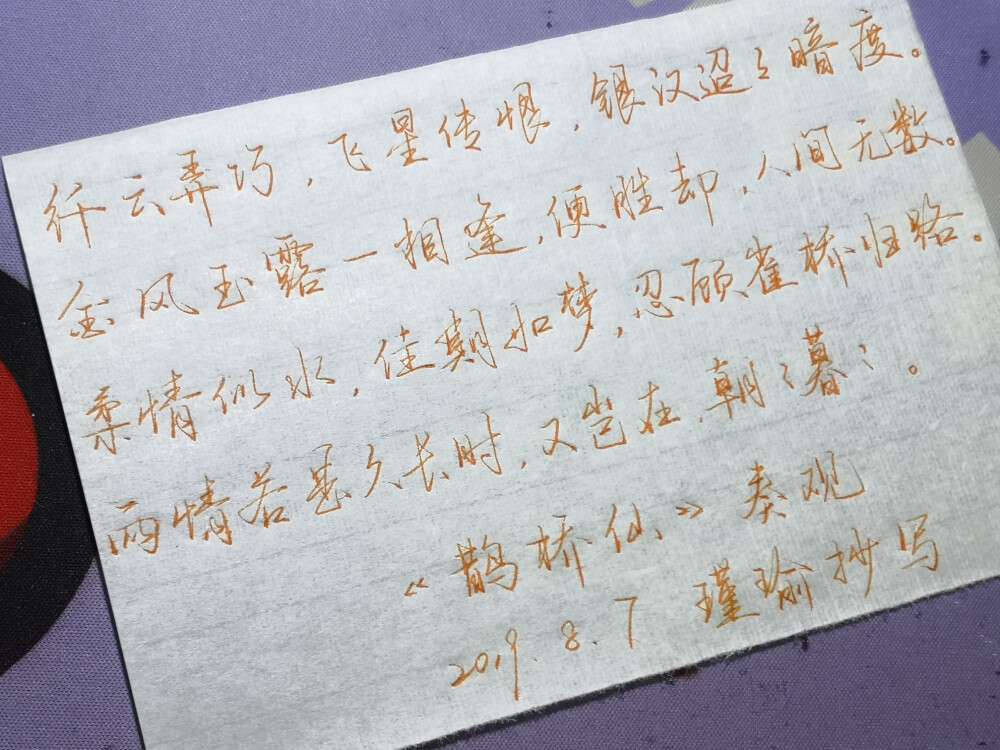 纤云弄巧，飞星传恨，银汉迢々暗度。
金风玉露一相逢，便胜却，人间无数。
柔情似水，佳期如梦，忍顾雀桥归路。
两情若是久长时，又岂在，朝々暮々。
《鹊桥仙》秦观
2019.8.7 瑾瑜抄写